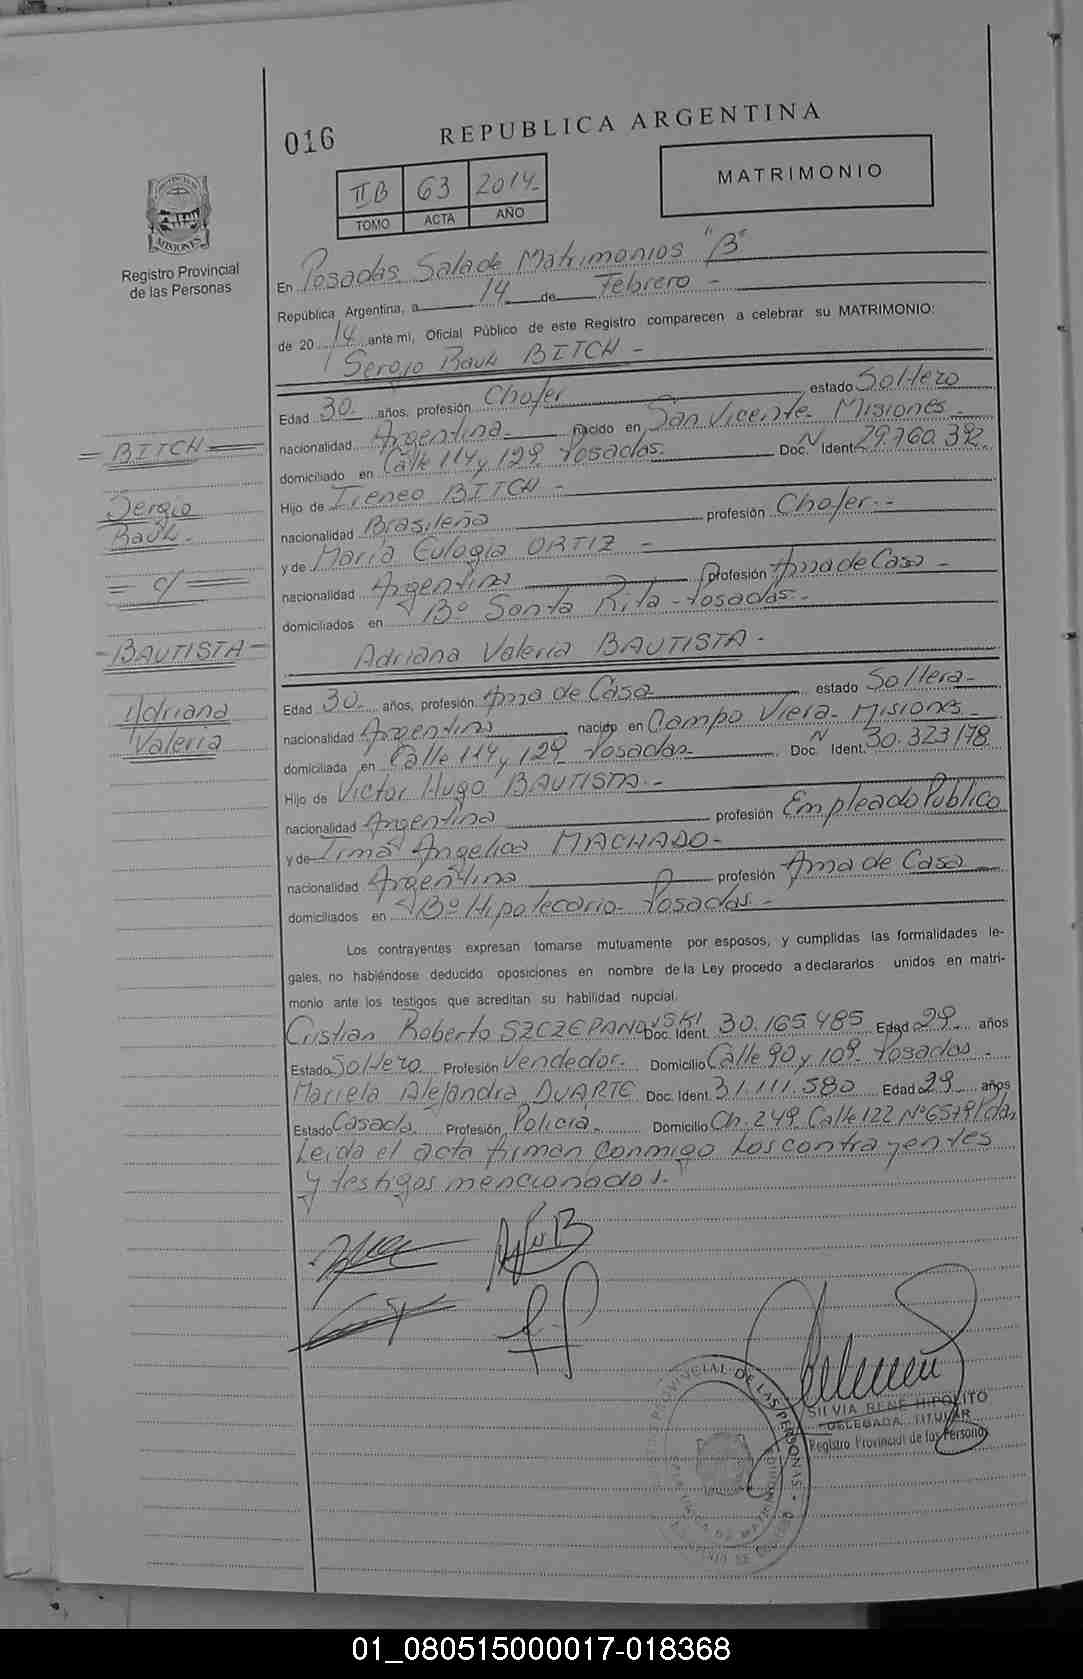 016
REPUBLICA ARGENTINA
IIB 63 2014-
TOMO ACTA AÑO
MATRIMONIO
MISIONES
Registro Provincial
de las Personas
En Posadas Sala de Matrimonios "B"
República Argentina, a 14 de Febrero -
de 20 14 ante mi, Oficial Público de este Registro comparecen a celebrar su MATRIMONIO:
Sergio Raúl BITCH -
Edad 30. años, profesión Chofer estado Soltero
nacionalidad Argentina. nacido en San Vicente- Misiones -
domiciliado en Calle 114 y 129. Posadas. Doc. N Ident 29.760.392.
Hijo de Ireneo BITCH -
nacionalidad Brasileña profesión Chofer.-
y de María Eulogia ORTIZ -
nacionalidad Argentina profesión Ama de Casa -
domiciliados en Bº Santa Rita - Posadas.-
Adriana Valeria BAUTISTA -
= BITCH =
Sergio
Raúl.
= c/ =
- BAUTISTA -
Adriana
Valeria
Edad 30. años, profesión Ama de Casa estado Soltera-
nacionalidad Argentina nacido en Campo Viera- Misiones-
domiciliada en Calle 114 y 129 Posadas Doc. N Ident. 30.323.178
Hijo de Victor Hugo BAUTISTA.-
nacionalidad Argentina profesión Empleado Publico
y de Irma Angelica MACHADO-
nacionalidad Argentina profesión Ama de Casa
domiciliados en Bº Hipotecario- Posadas.-
Los contrayentes expresan tomarse mutuamente por esposos, y cumplidas las formalidades le-
gales, no habiéndose deducido oposiciones en nombre de la Ley procedo a declararlos unidos en matri-
monio ante los testigos que acreditan su habilidad nupcial.
Cristian Roberto SZCZEPANOWSKI Doc. Ident. 30.165.485 Edad 29 años
Estado Soltero Profesión Vendedor. Domicilio Calle 90 y 109. Posadas -
Mariela Alejandra DUARTE Doc. Ident. 31.111.580 Edad 29 años
Estado Casada Profesión Policia. Domicilio Ch. 249 Calle 122 Nº 6579 Pdas
Leida el acta firman conmigo los contrayentes
y testigos mencionados.
SILVIA RENE HIPOLITO
DELEGADA TITULAR
Registro Provincial de las Personas
PROVINCIAL DE LAS PERSONAS
01_080515000017-018368